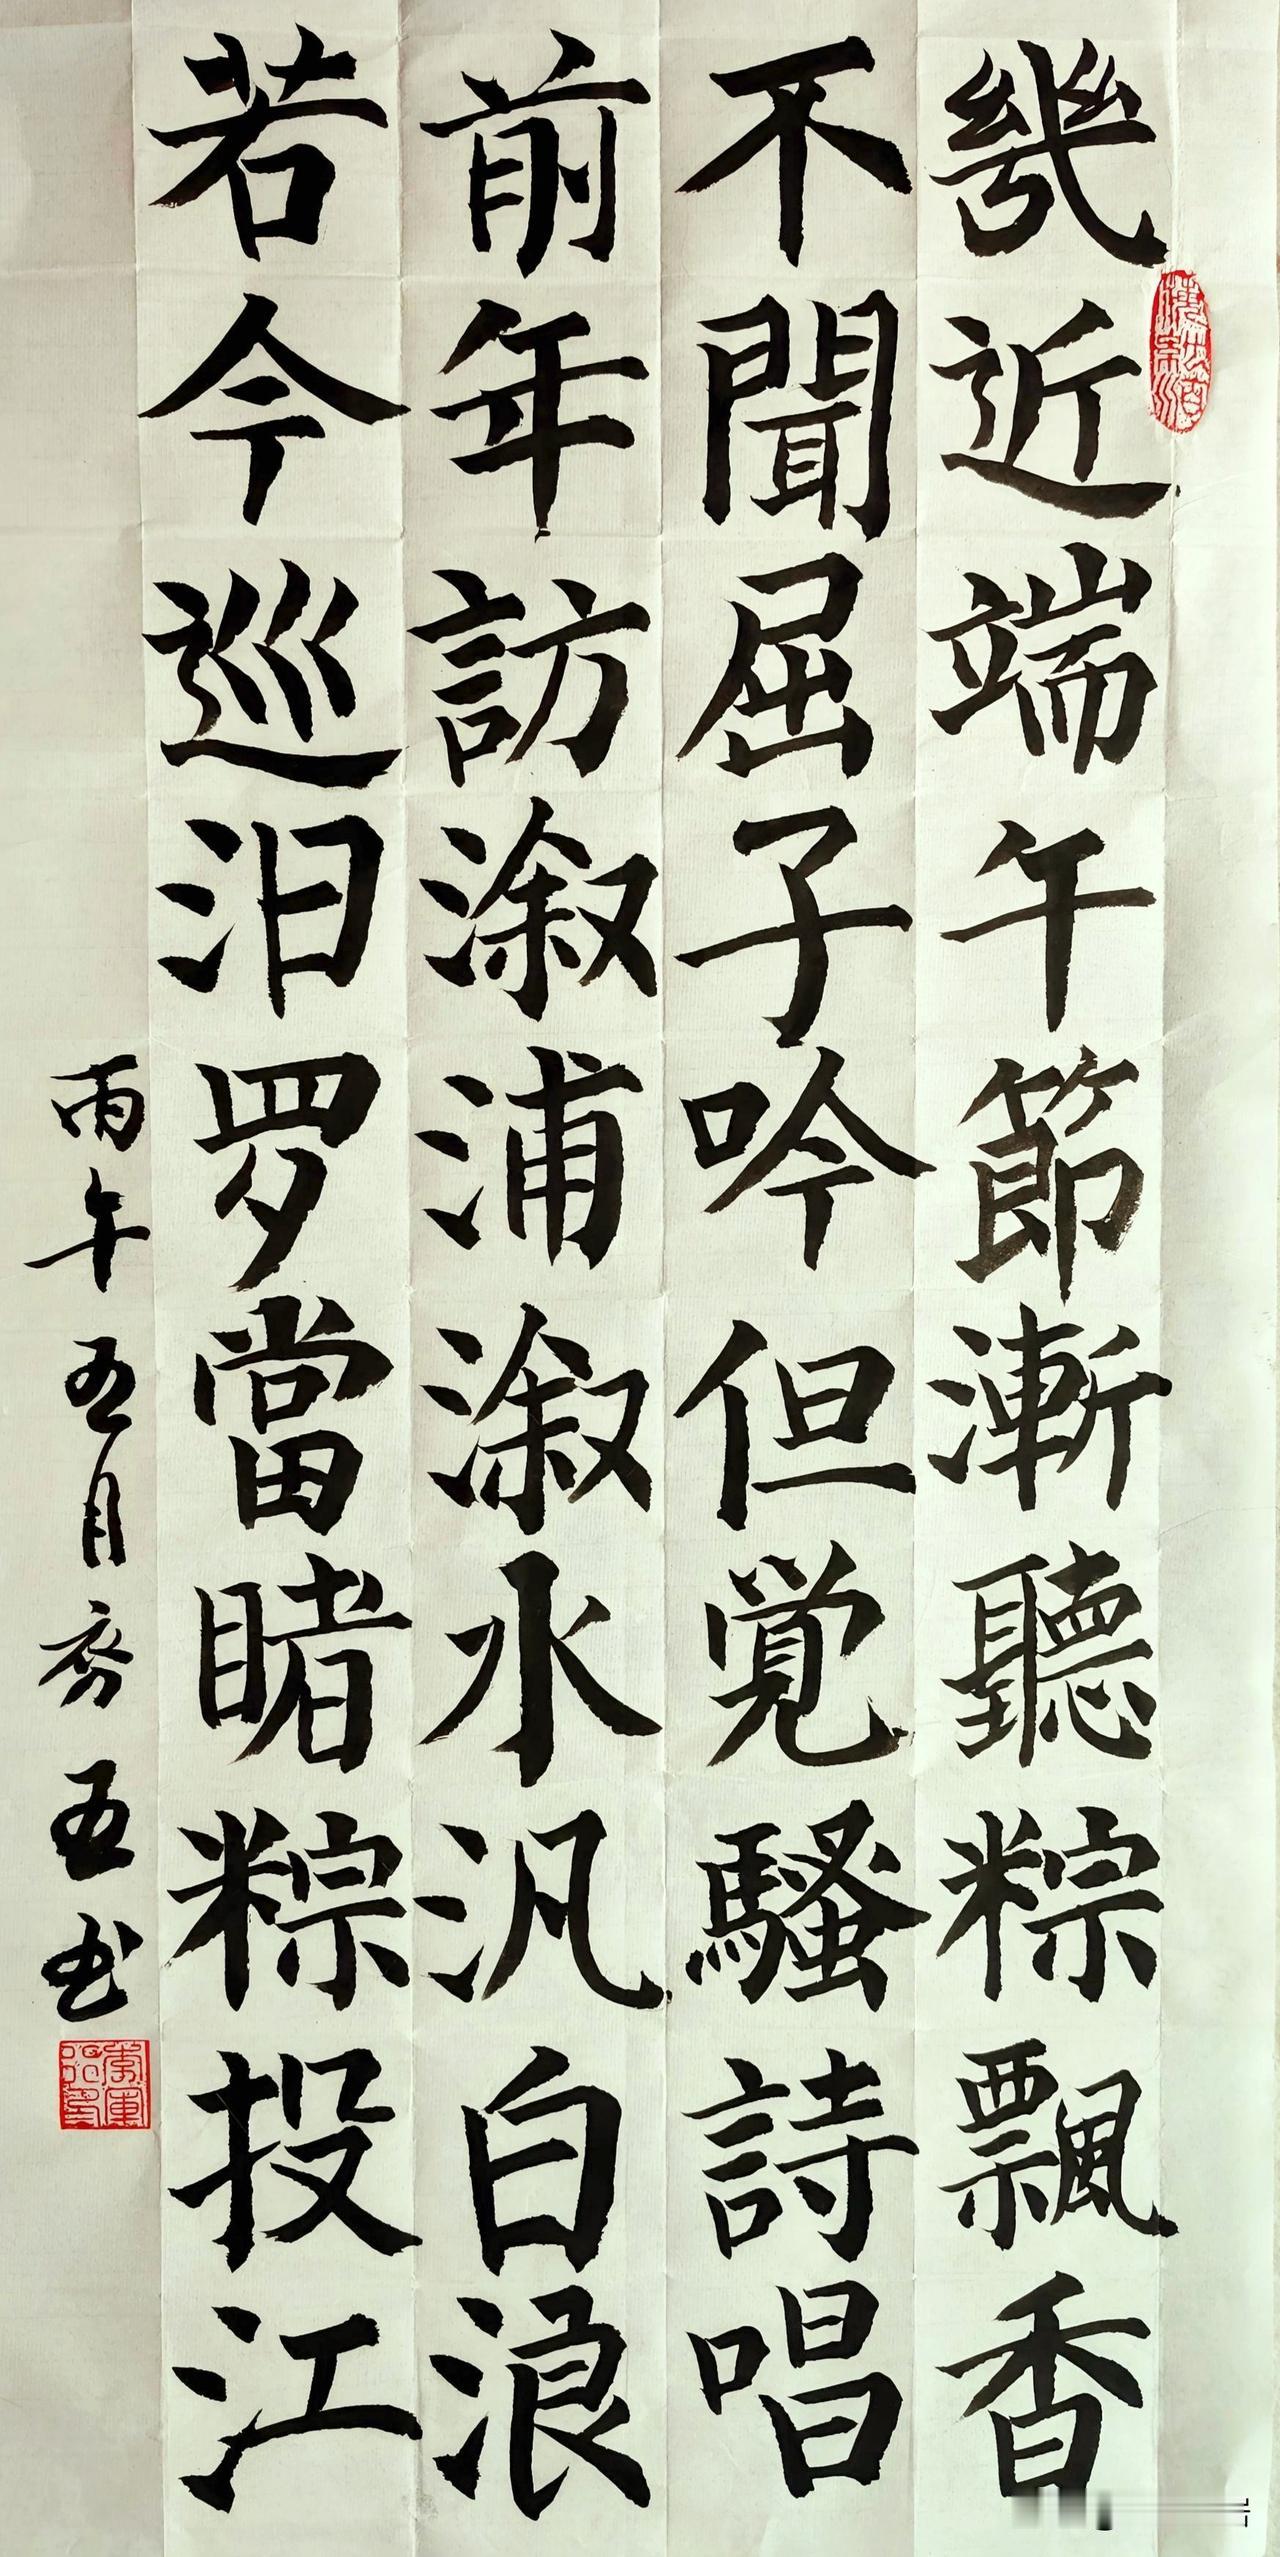 幾近端午節漸聽粽飄香
不聞屈子吟但覚騷詩唱
前年訪溆浦溆水汎白浪
若今巡汨罗當睹粽投江
丙午五月齐五书